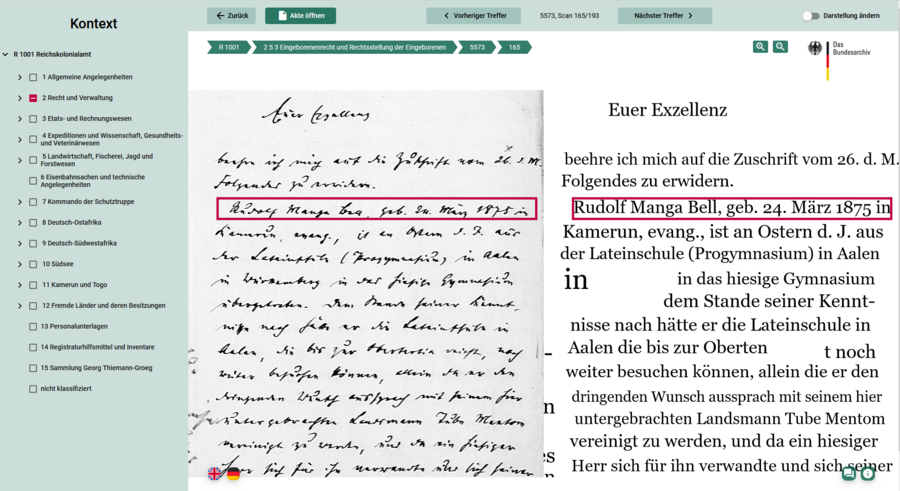 Kontext
R 1001 Reichskolonialamt
1 Allgemeine Angelegenheiten
2 Recht und Verwaltung
3 Etats- und Rechnungswesen
4 Expeditionen und Wissenschaft, Gesundheits-
und Veterinärwesen
5 Landwirtschaft, Fischerei, Jagd und
Forstwesen
6 Eisenbahnsachen und technische
Angelegenheiten
7 Kommando der Schutztruppe
8 Deutsch-Ostafrika
9 Deutsch-Südwestafrika
10 Südsee
11 Kamerun und Togo
12 Fremde Länder und deren Besitzungen
13 Personalunterlagen
14 Registraturhilfsmittel und Inventare
15 Sammlung Georg Thiemann-Groeg
nicht klassifiziert
Zurück
Akte öffnen
Vorheriger Treffer
5573, Scan 165/193
Nächster Treffer
Darstellung ändern
R 1001
2 5 3 Eingeborenenrecht und Rechtsstellung der Eingeborenen
5573
165
Das
Bundesarchiv
Euer Exzellenz
beehre ich mich auf die Zuschrift vom 26. d. M.
Folgendes zu erwidern.
Rudolf Manga Bell, geb. 24. März 1875 in
Kamerun, evang., ist an Ostern d. J. aus
der Lateinschule (Progymnasium) in Aalen
in Württemberg in das hiesige Gymnasium
übergetreten. Dem Stande seiner Kennt-
nisse nach hätte er die Lateinschule in
Aalen, die bis zur Obertertia reicht, noch
weiter besuchen können, allein da er den
dringenden Wunsch aussprach mit seinem hier
untergebrachten Landsmann Tube Mentom
vereinigt zu werden, und da ein hiesiger
Herr sich für ihn verwandte und sich seiner
Euer Exzellenz
beehre ich mich auf die Zuschrift vom 26. d. M.
Folgendes zu erwidern.
Rudolf Manga Bell, geb. 24. März 1875 in
Kamerun, evang., ist an Ostern d. J. aus
der Lateinschule (Progymnasium) in Aalen
in in das hiesige Gymnasium
dem Stande seiner Kennt-
nisse nach hätte er die Lateinschule in
Aalen die bis zur Oberten t noch
weiter besuchen können, allein die er den
dringenden Wunsch aussprach mit seinem hier
untergebrachten Landsmann Tube Mentom
vereinigt zu werden, und da ein hiesiger
Herr sich für ihn verwandte und sich seiner